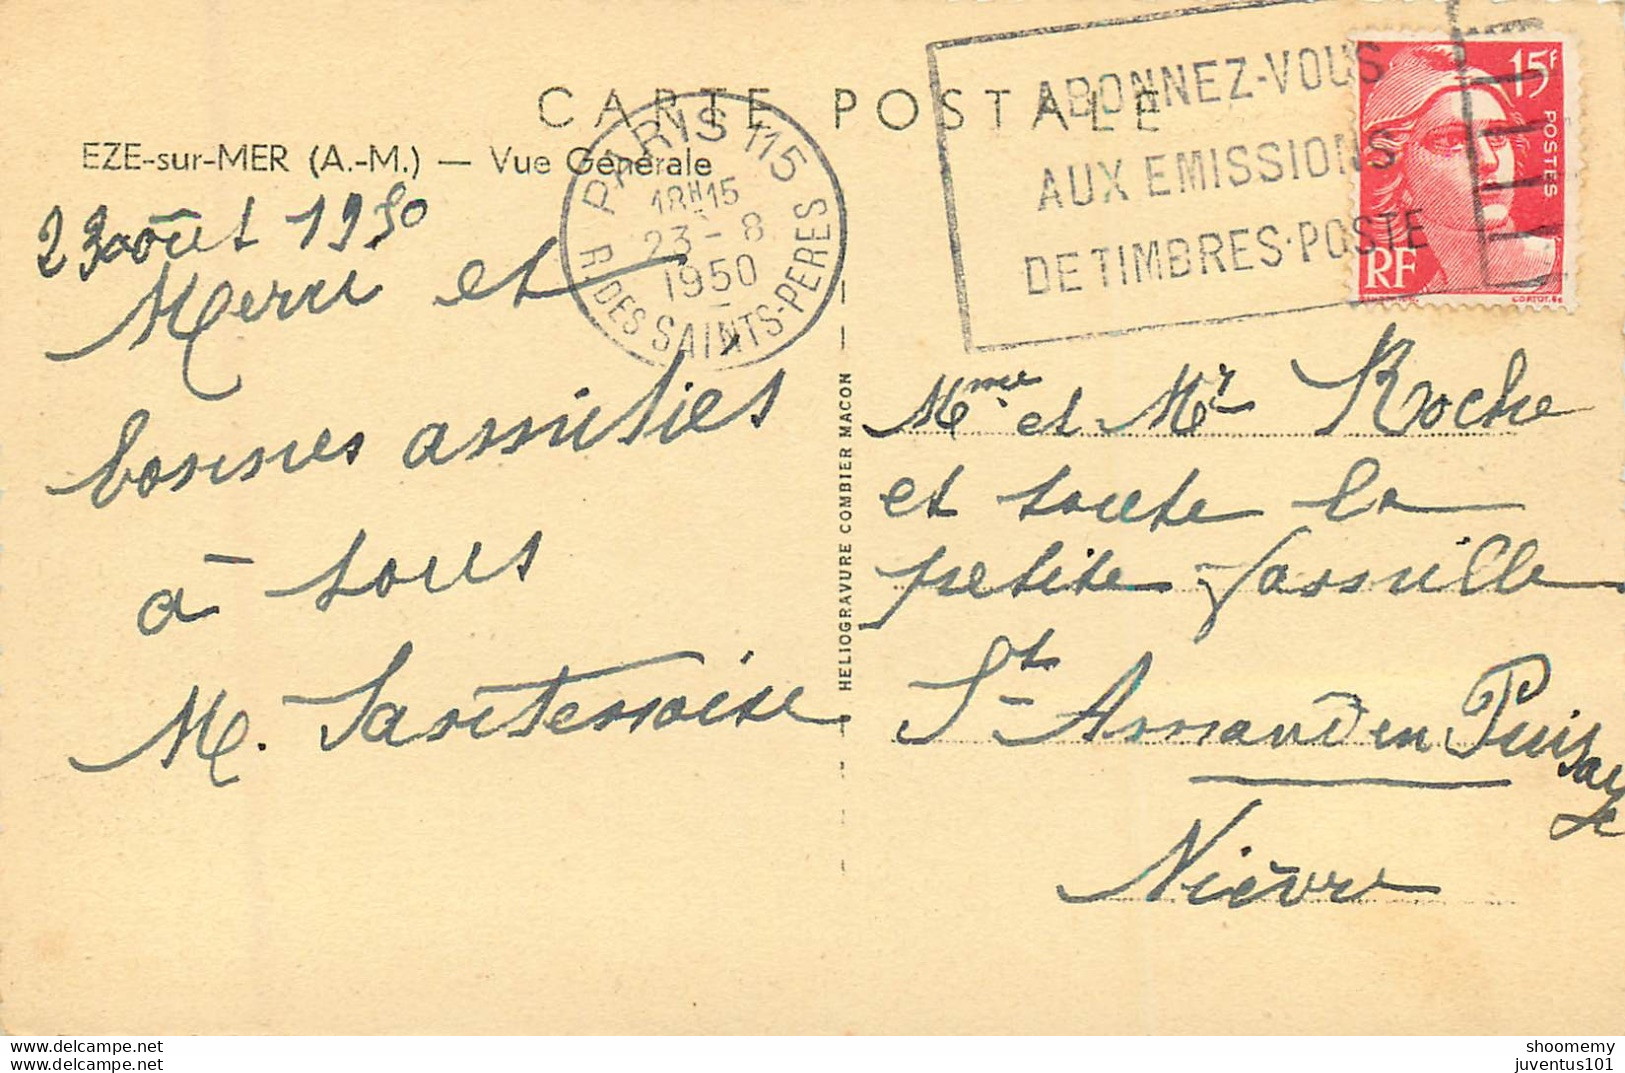 CARTE POSTALE
EZE-sur-MER (A.-M.) — Vue Générale
PARIS 115
18H15
23-8
1950
R. DES SAINTS-PERES
ABONNEZ-VOUS
AUX EMISSIONS
DE TIMBRES-POSTE
15F
POSTES
RF
23 août 1950
Merci et
bonnes amitiés
à tous
HELIOGRAVURE COMBIER MACON
Mme et Mr Roche
et toute la
petite famille
St Amand en Puisaye
Nièvre
www.delcampe.net
www.delcampe.com
shoomemy
juventus101